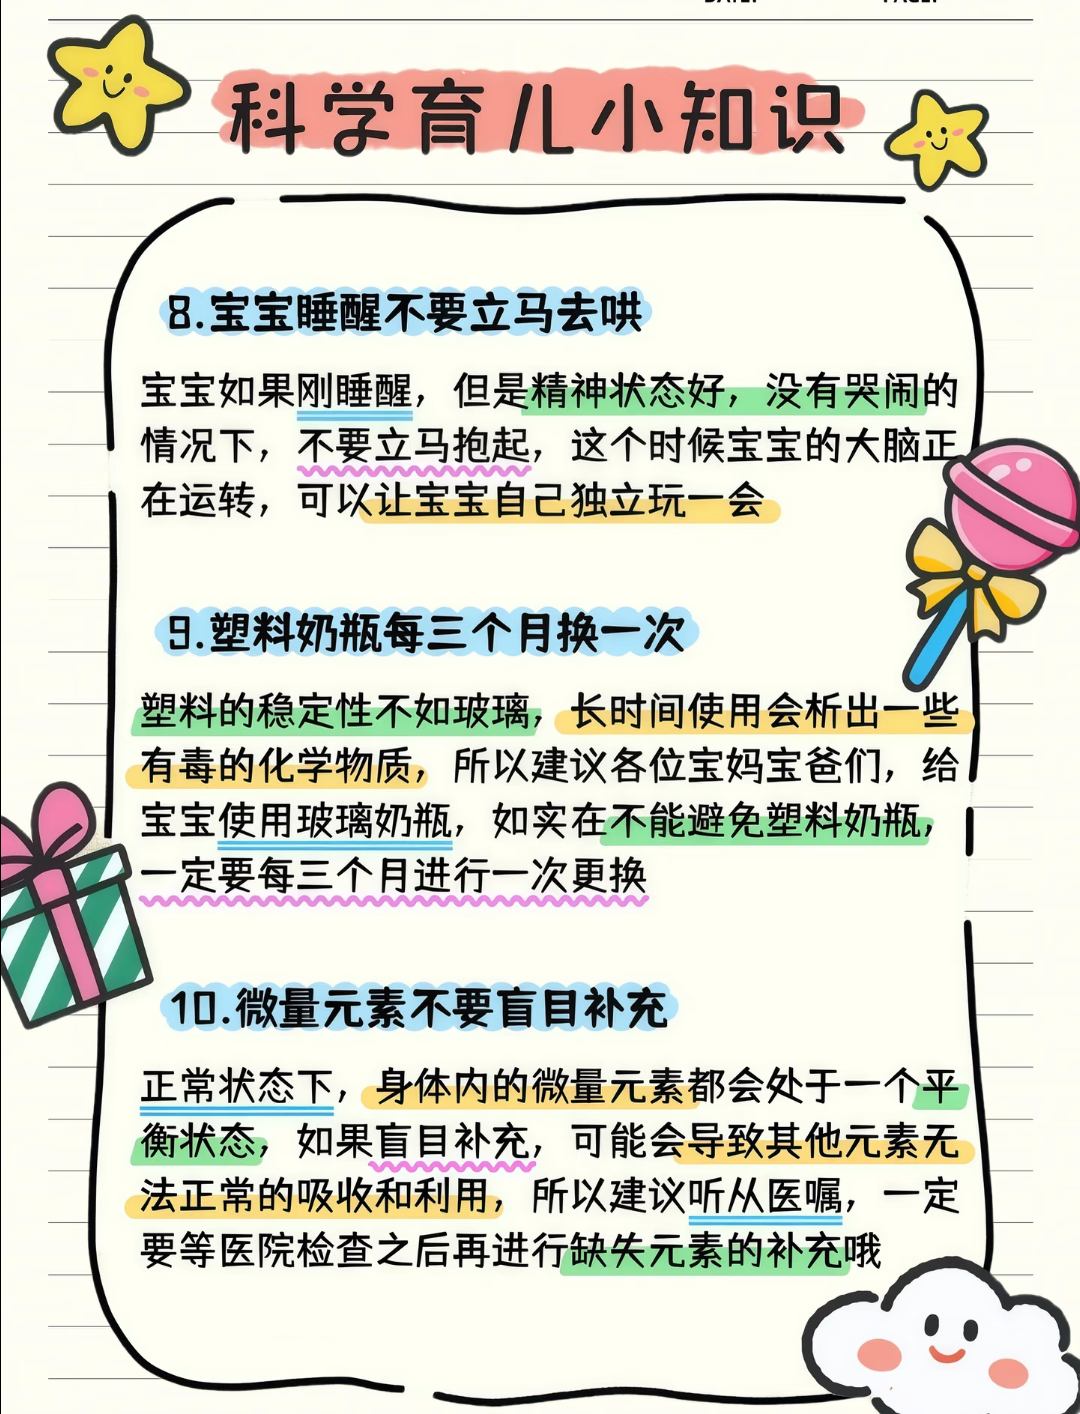 科学育儿小知识
8.宝宝睡醒不要立马去哄
宝宝如果刚睡醒，但是精神状态好，没有哭闹的
情况下，不要立马抱起，这个时候宝宝的大脑正
在运转，可以让宝宝自己独立玩一会
9.塑料奶瓶每三个月换一次
塑料的稳定性不如玻璃，长时间使用会析出一些
有毒的化学物质，所以建议各位宝妈宝爸们，给
宝宝使用玻璃奶瓶，如实在不能避免塑料奶瓶，
一定要每三个月进行一次更换
10.微量元素不要盲目补充
正常状态下，身体内的微量元素都会处于一个平
衡状态，如果盲目补充，可能会导致其他元素无
法正常的吸收和利用，所以建议听从医嘱，一定
要等医院检查之后再进行缺失元素的补充哦